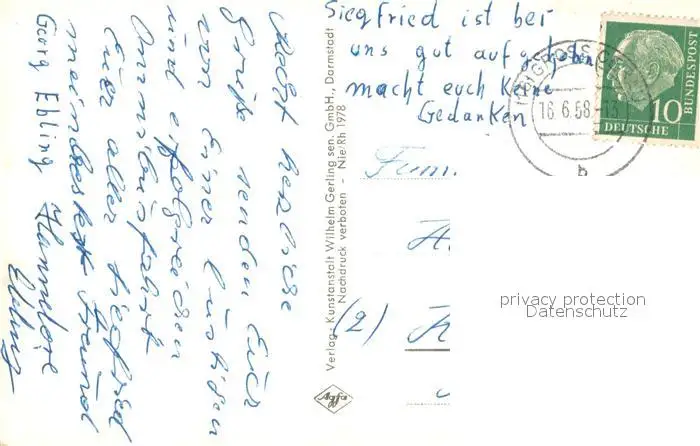 Siegfried ist bei
uns gut aufgehoben
macht euch keine
Gedanken
Recht herzliche
Grüße senden Euch
von einer lustigen
und erfolgreichen
Omnibusfahrt
Euer aller Siegfried
mein bester Freund
Georg Ebling Hannelore
Ebling
Verlag - Kunstanstalt Wilhelm Gerling sen. GmbH., Darmstadt
Nachdruck verboten - Nie/Rh 1978
Agfa
Fam.
(2)
16.6.58.-13
b
10
BUNDESPOST
DEUTSCHE
privacy protection
Datenschutz